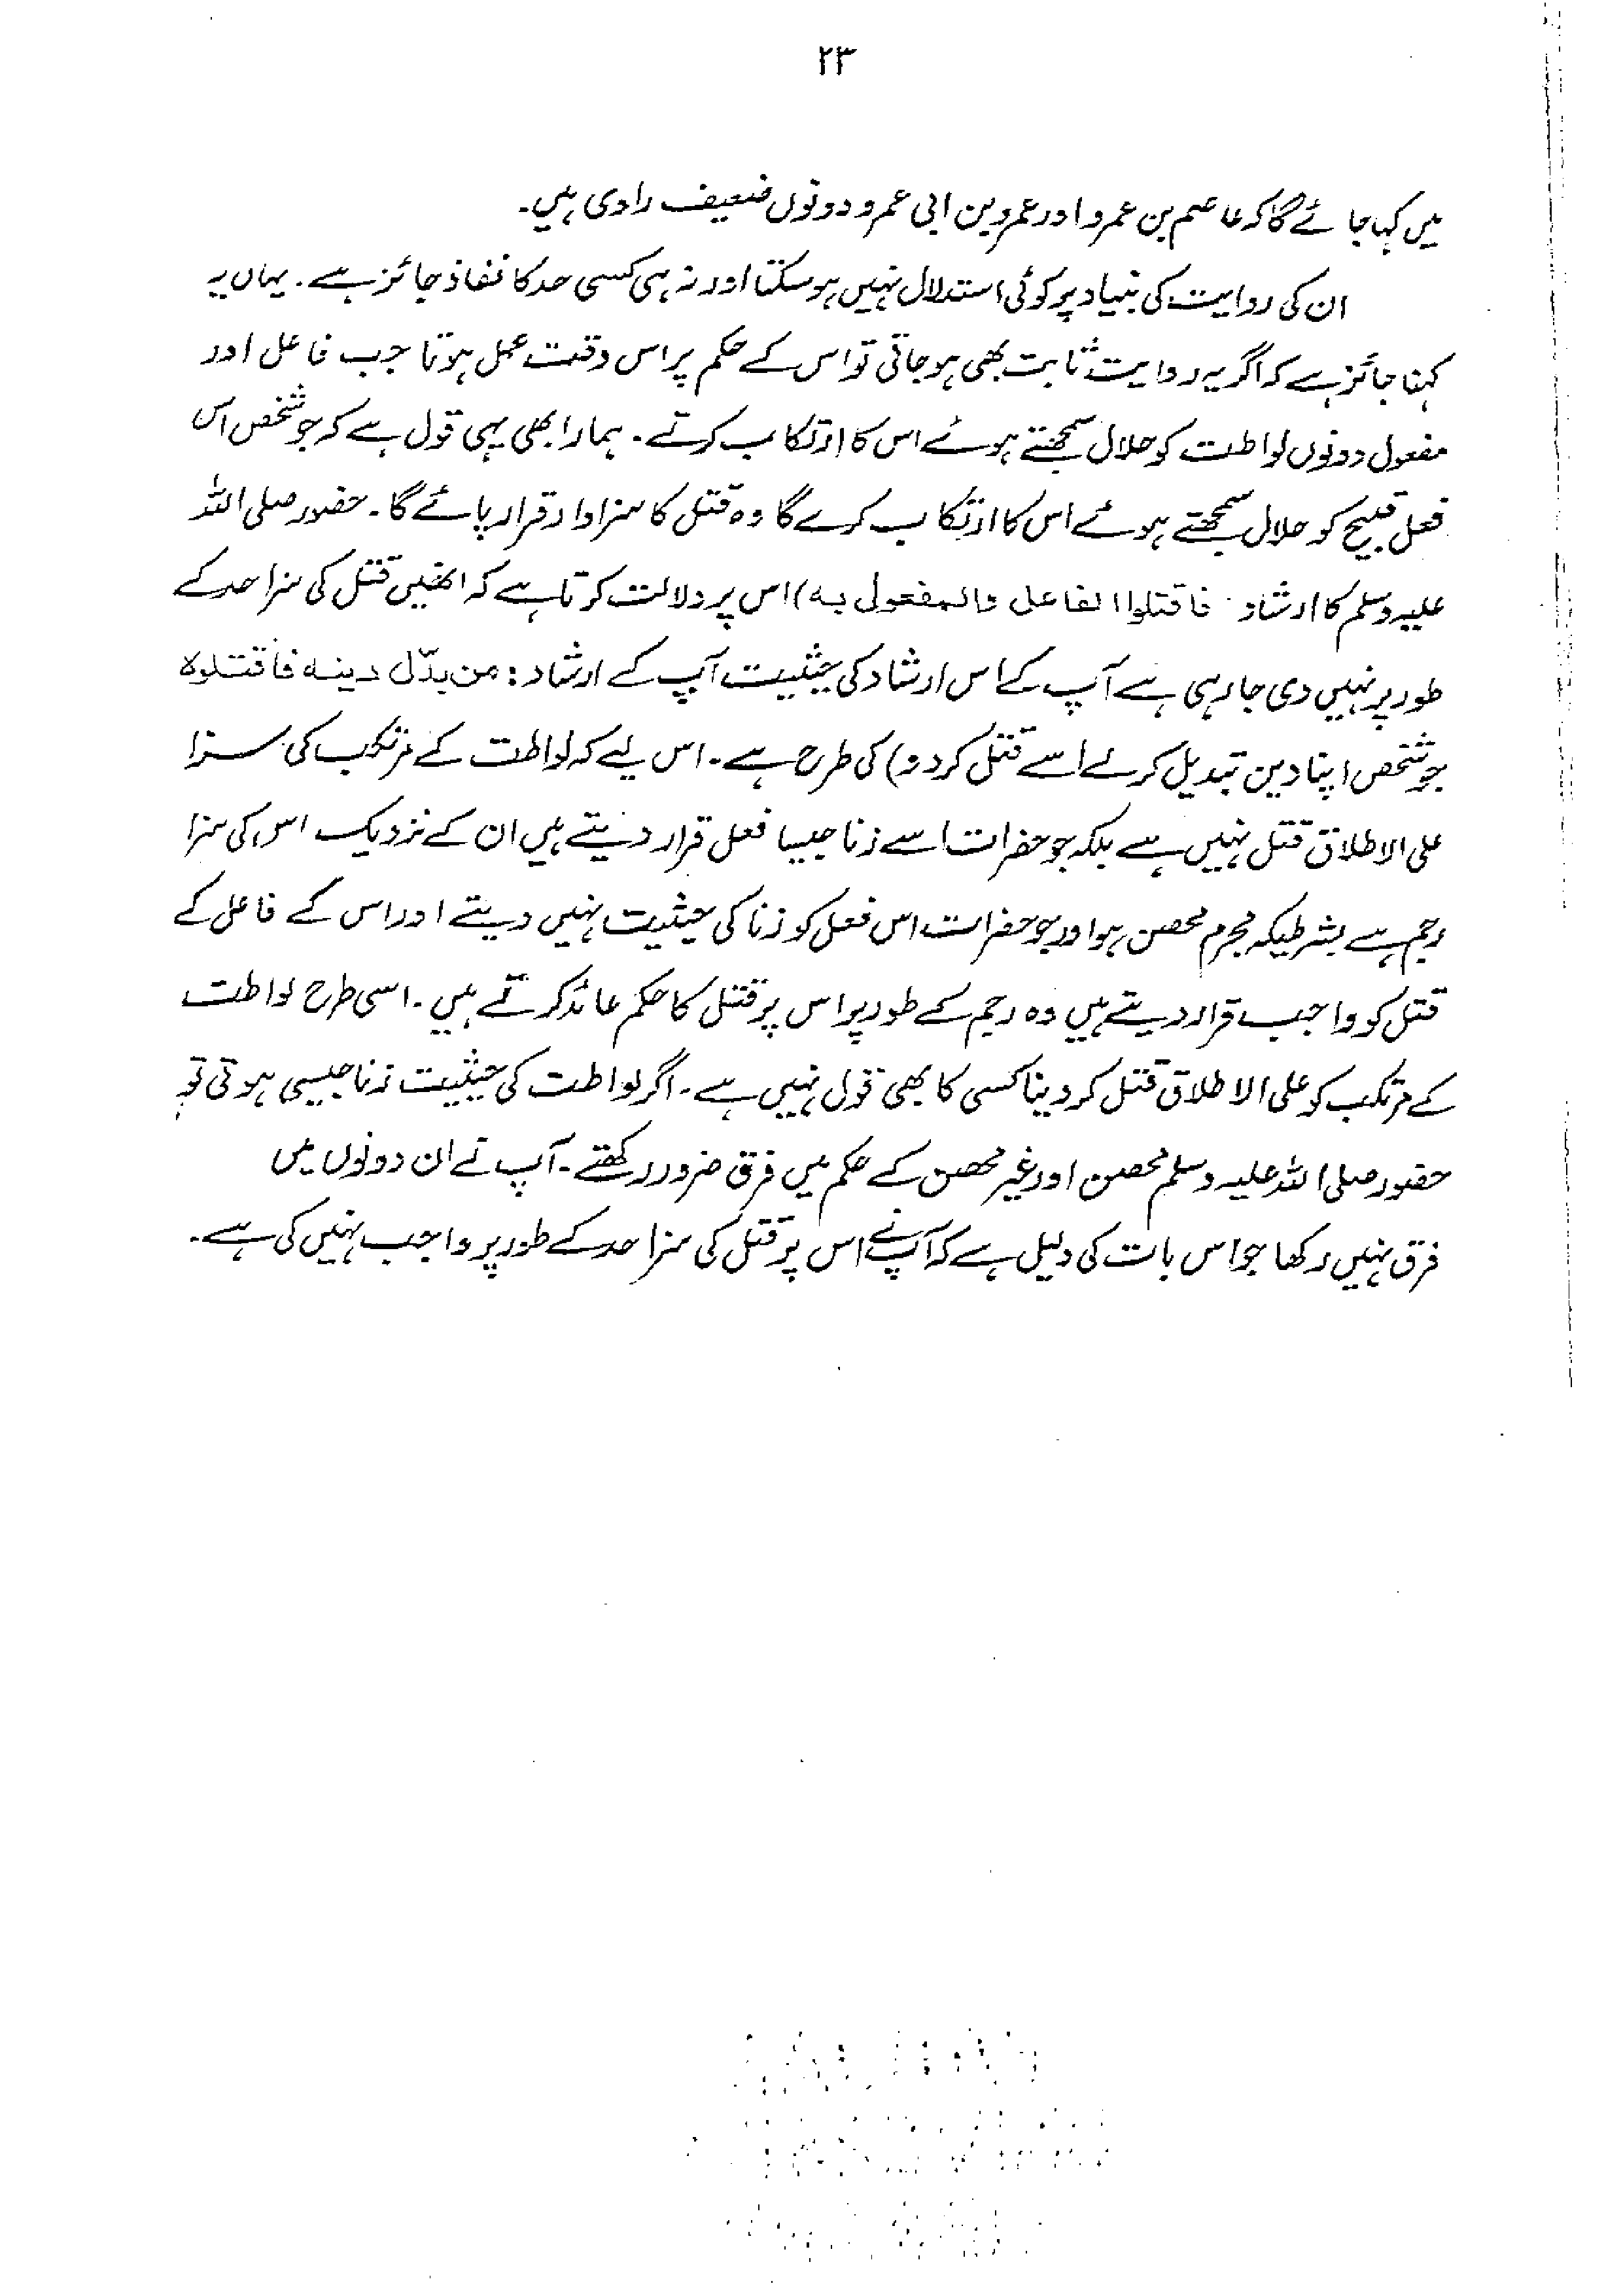 ۲۳
میں کہا جائے گا کہ عاصم بن عمرو اور عمرو بن ابی عمرو دونوں ضعیف راوی ہیں۔
ان کی روایت کی بنیاد پر کوئی استدلال نہیں ہو سکتا اور نہ ہی کسی حد کا نفاذ جائز ہے۔ یہاں یہ
کہنا جائز ہے کہ اگر یہ روایت ثابت بھی ہو جاتی تو اس کے حکم پر اس وقت عمل ہوتا جب فاعل اور
مفعول دونوں لواطت کو حلال سمجھتے ہوئے اس کا ارتکاب کرتے۔ ہمارا بھی یہی قول ہے کہ جو شخص اس
فعل قبیح کو حلال سمجھتے ہوئے اس کا ارتکاب کرے گا وہ قتل کا سزاوار قرار پائے گا۔ حضور صلی اللہ
علیہ وسلم کا ارشاد فاقتلوا الفاعل والمفعول به) اس پر دلالت کرتا ہے کہ انھیں قتل کی سزا حد کے
طور پر نہیں دی جا رہی ہے آپ کے اس ارشاد کی حیثیت آپ کے ارشاد: من بدّل دينه فاقتلوه
جو شخص اپنا دین تبدیل کر لے اسے قتل کر دو) کی طرح ہے۔ اس لیے کہ لواطت کے مرتکب کی سزا
علی الاطلاق قتل نہیں ہے بلکہ جو حضرات اسے زنا جیسا فعل قرار دیتے ہیں ان کے نزدیک اس کی سزا
رجم ہے بشرطیکہ مجرم محصن ہو اور جو حضرات اس فعل کو زنا کی حیثیت نہیں دیتے اور اس کے فاعل کے
قتل کو واجب قرار دیتے ہیں وہ رجم کے طور پر اس پر قتل کا حکم عائد کرتے ہیں۔ اسی طرح لواطت
کے مرتکب کو علی الاطلاق قتل کر دینا کسی کا بھی قول نہیں ہے۔ اگر لواطت کی حیثیت زنا جیسی ہوتی تو
حضور صلی اللہ علیہ وسلم محصن اور غیر محصن کے حکم میں فرق ضرور رکھتے۔ آپ نے ان دونوں میں
فرق نہیں رکھا جو اس بات کی دلیل ہے کہ آپ نے اس پر قتل کی سزا حد کے طور پر واجب نہیں کی ہے۔